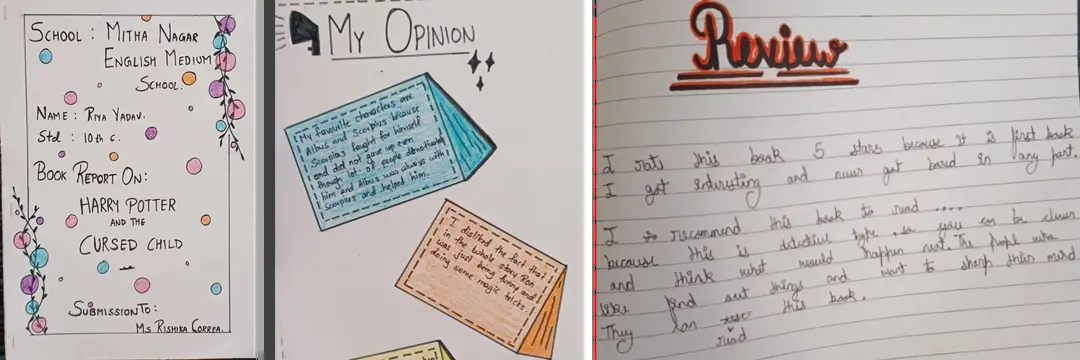 School : Mitha Nagar
English Medium
School.
Name : Riya Yadav.
Std : 10th c.
Book Report On:
Harry Potter
and the
Cursed Child
Submission To:
Ms Rishika Correa.
My Opinion
My favourite characters are
Albus and Scorpius because
Scorpius fought for himself
and did not gave up even
though lot of people demotivated
him and Albus was always with
Scorpius and helped him.
I disliked the fact that
in the whole story Ron
was just being funny and
doing some magic tricks.
Review
I rate this book 5 stars because it is first book
I got intrusting and never got bored in any part.
I recommend this book to read ....
because this is detective type so you can be clever
and think what would happen next. The people who
like find out things and want to sharp their mind
They can this book.
read